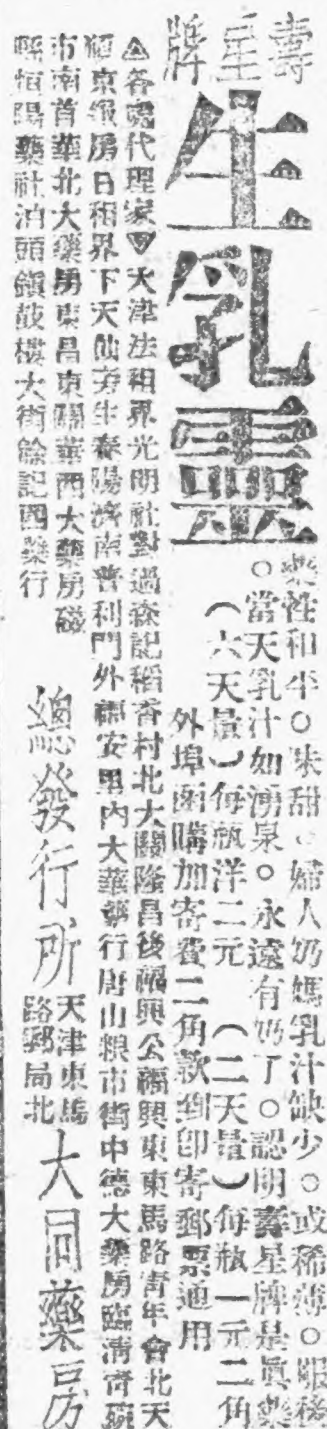 壽星牌
生乳靈
藥性和平○味甜○婦人奶媽乳汁缺少○或稀薄○服後
○當天乳汁如湧泉○永遠有奶了○認明壽星牌是眞藥
(六天量)每瓶洋二元 (二天量)每瓶一元二角
外埠函購加寄費二角款到卽寄郵票通用
△各處代理家▽天津法租界光明社對過森記稻香村北大關隆昌後福興公福興東東馬路靑年會北天
京報房日租界下天仙旁生春陽濟南普利門外福安里內大華藥行唐山糧市街中德大藥房臨淸靑碗
市南首華北大藥房東昌東關華西大藥房磁
縣恒陽藥社泊頭鎭鼓樓大街餘記西藥行
總發行所
天津東馬
路郵局北
大同藥房